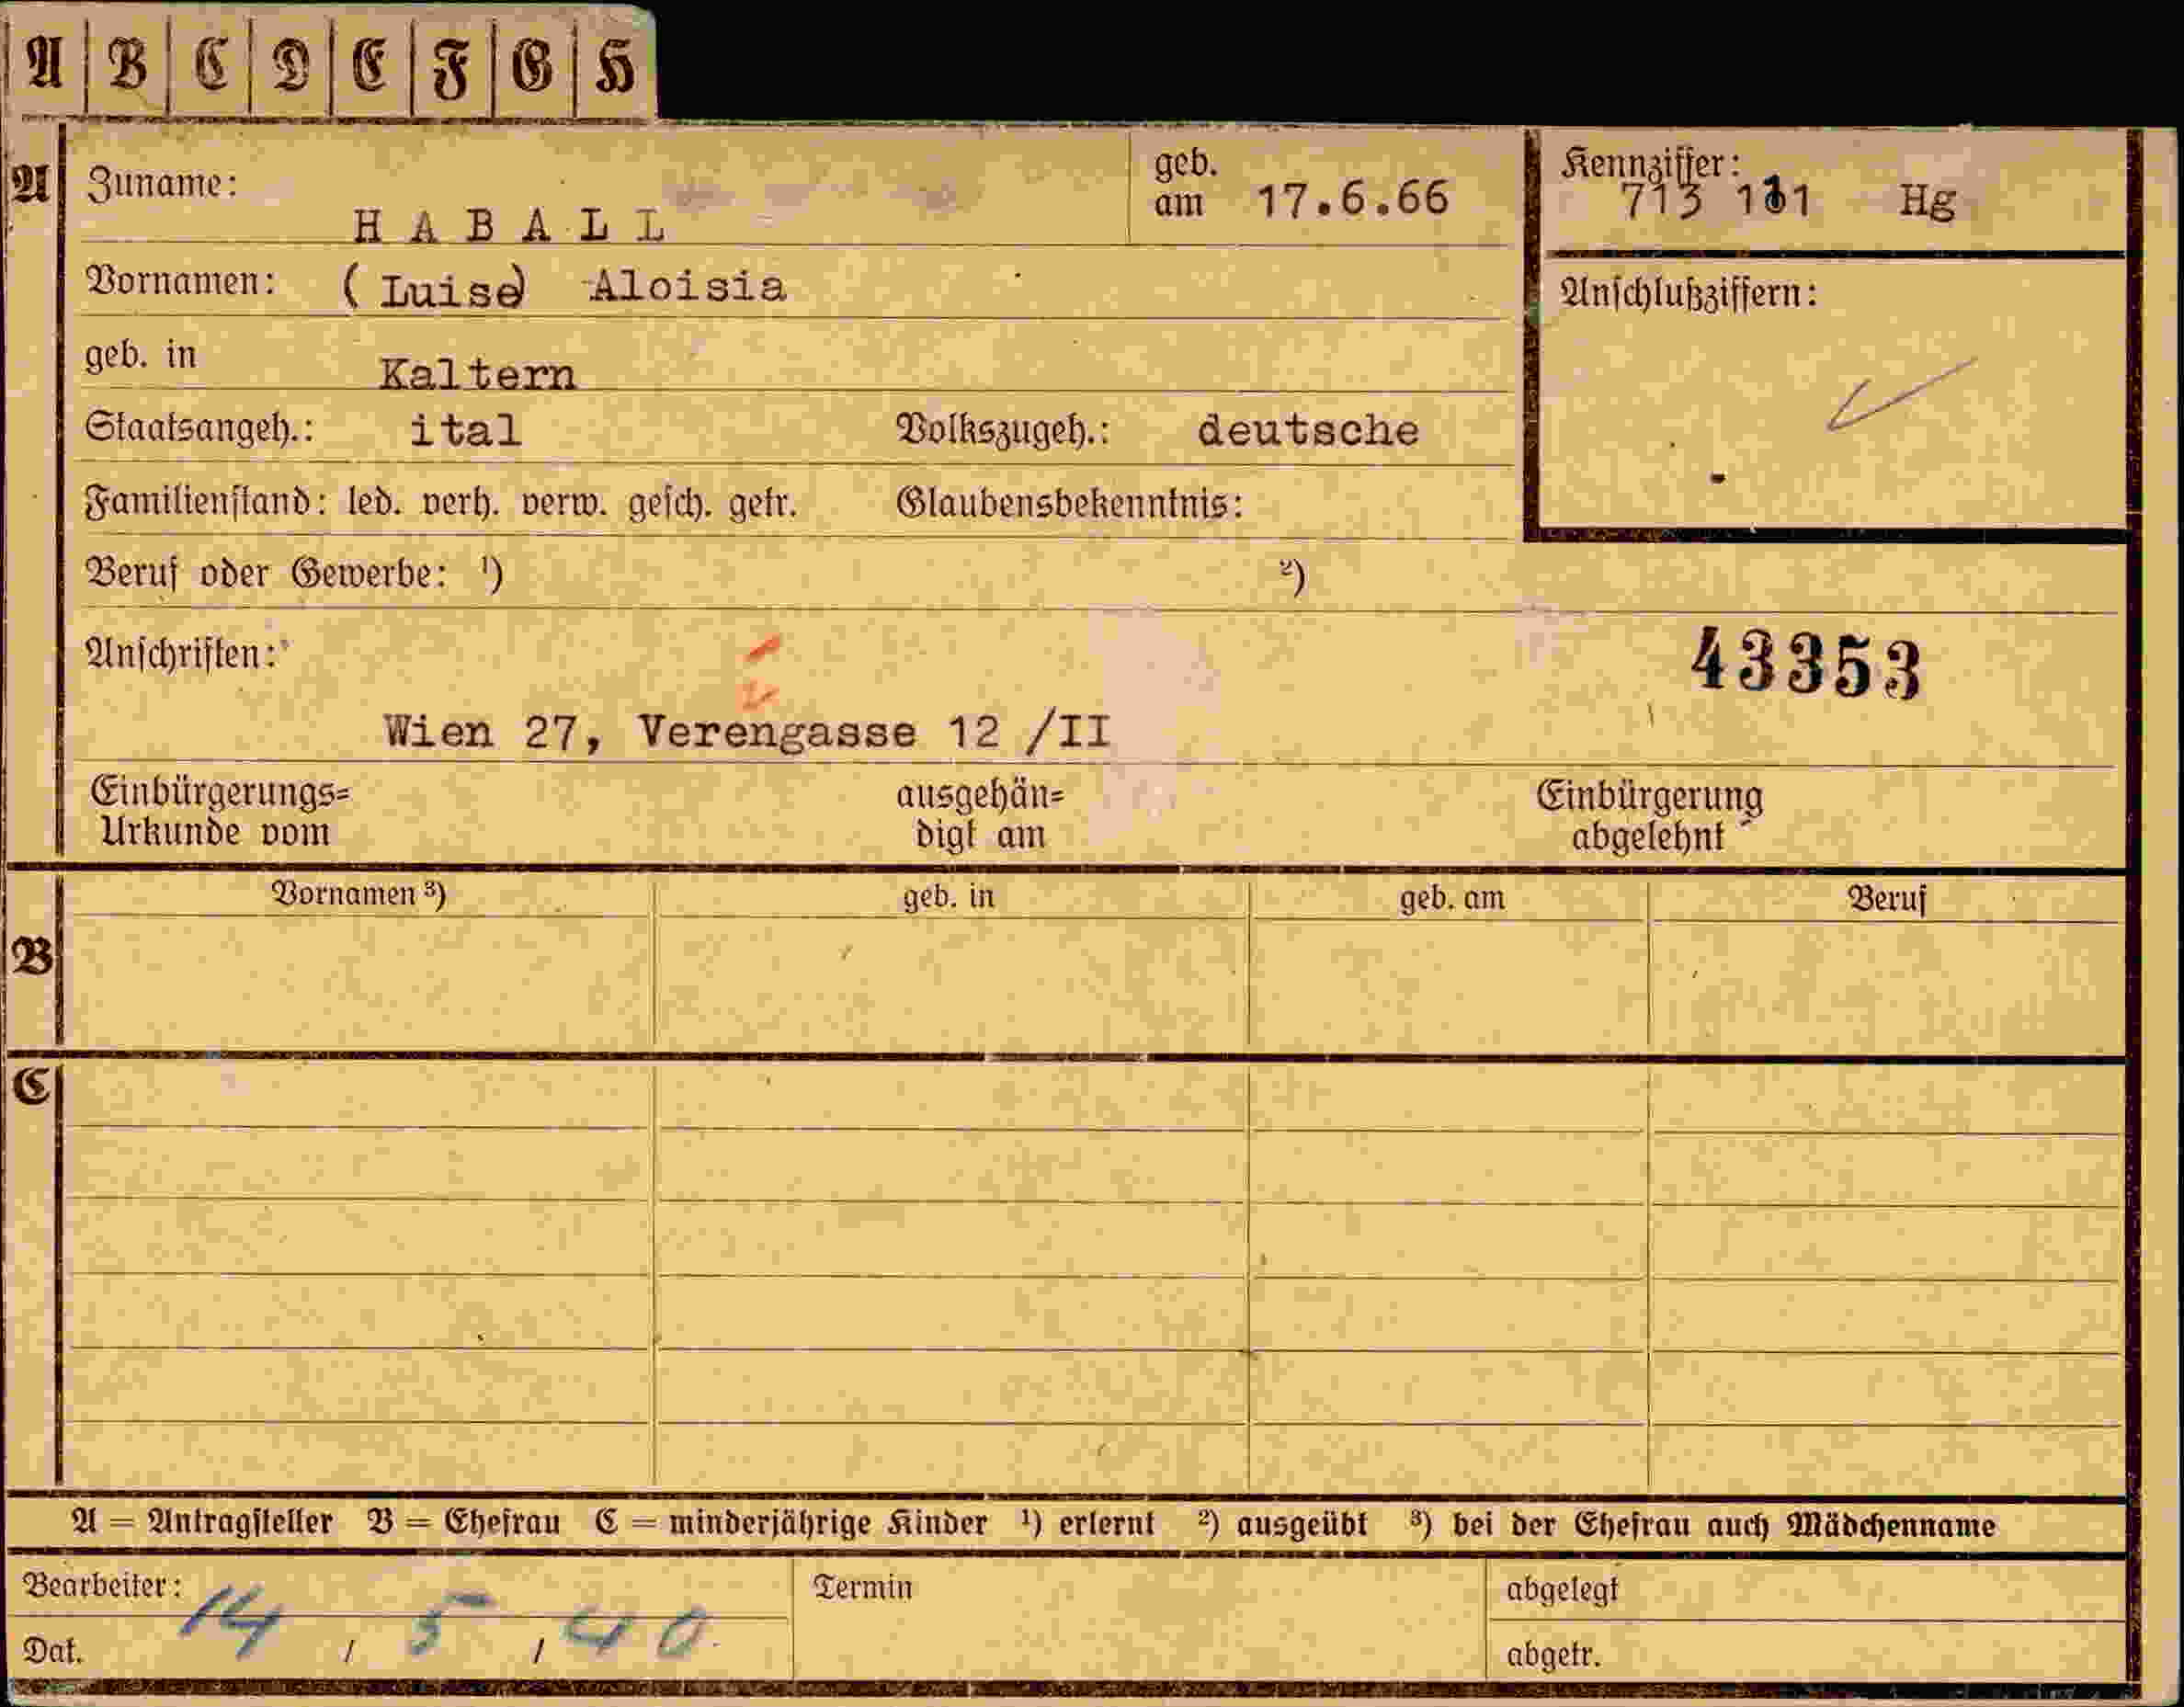 A B C D E F G H
A Zuname: HABALL geb. am 17.6.66 Kennziffer: 713 181 Hg
Vornamen: (Luise) Aloisia Anschlußziffern:
geb. in Kaltern
Staatsangeh.: ital Volkszugeh.: deutsche
Familienstand: led. verh. verw. gesch. getr. Glaubensbekenntnis:
Beruf oder Gewerbe: ¹) ²)
Anschriften: 43353
Wien 27, Verengasse 12 /II
Einbürgerungs= ausgehän= Einbürgerung
Urkunde vom digt am abgelehnt
Vornamen ³) geb. in geb. am Beruf
B
C
A = Antragsteller B = Ehefrau C = minderjährige Kinder ¹) erlernt ²) ausgeübt ³) bei der Ehefrau auch Mädchenname
Bearbeiter: Termin abgelegt
Dat. 14 / 5 / 40 abgetr.